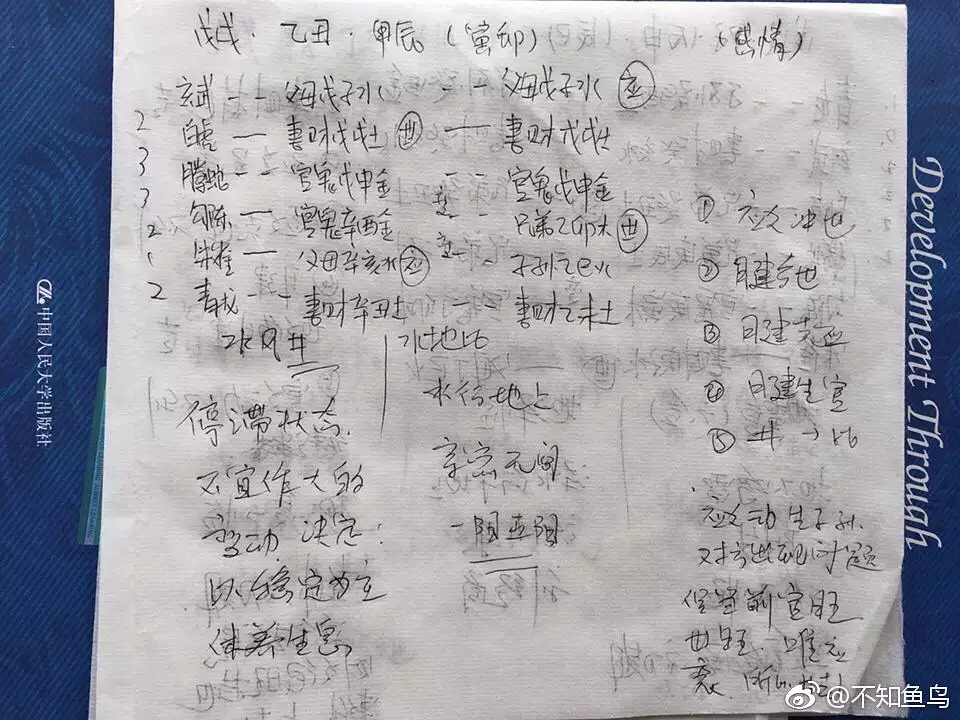 戊戌·乙丑·甲辰(寅卯) (感情)
玄武 -- 父母戊子水 -- 父母戊子水 应
2 白虎 — 妻财戊戌土 世 — 妻财戊戌土
3 腾蛇 -- 官鬼戊申金 -- 官鬼戊申金
3 勾陈 — 官鬼辛酉金 -- 兄弟乙卯木 世
2 朱雀 — 父母辛亥水 应 -- 子孙乙巳火
1
2 青龙 -- 妻财辛丑土 -- 妻财乙未土
水风井 水地比
停滞状态
不宜作大的
变动 决定:
以稳定为主
休养生息
水行地上
亲密无间
① 应爻冲世
② 日建合世
③ 日建克应
④ 日建生官
⑤ 井→比
应爻动生子孙
对方出现问题
官旺
世旺 唯应
衰
Development Through
中国人民大学出版社
@不知鱼鸟